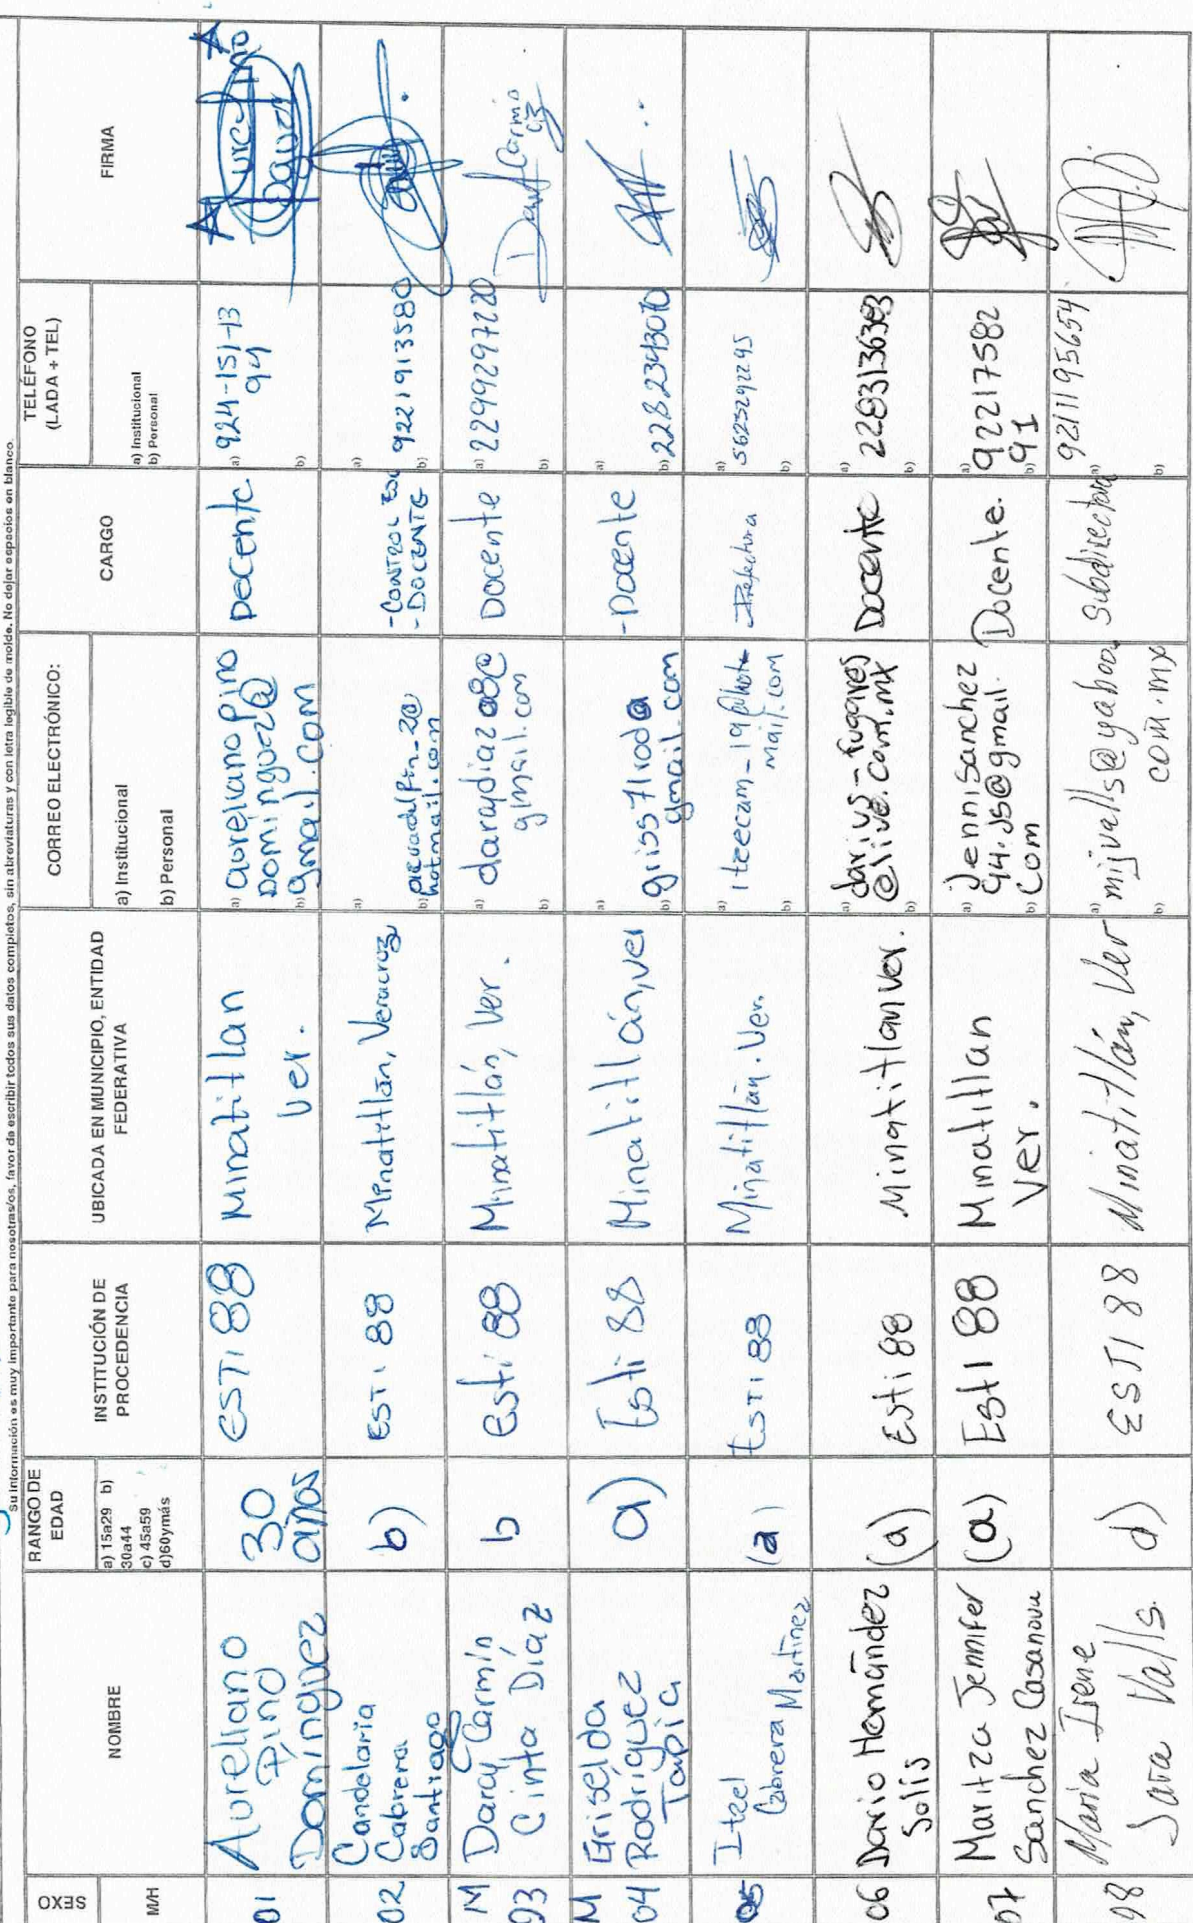 Su información es muy importante para nosotras/os, favor de escribir todos sus datos completos, sin abreviaturas y con letra legible de molde. No dejar espacios en blanco.
SEXO
M/H
NOMBRE
RANGO DE
EDAD
a) 15a29 b)
30a44
c) 45a59
d)60ymás
INSTITUCIÓN DE
PROCEDENCIA
UBICADA EN MUNICIPIO, ENTIDAD
FEDERATIVA
CORREO ELECTRÓNICO:
a) Institucional
b) Personal
CARGO
TELÉFONO
(LADA + TEL)
a) Institucional
b) Personal
FIRMA
01
Aureliano
Pino
Domínguez
30
años
ESTI 88
Minatitlan
Ver.
a) aureliano Pino
Dominguez@
b) gmail.com
Docente
a) 924-151-13
94
b)
02
Candelaria
Cabrera
Santiago
b)
ESTI 88
Minatitlán, Veracruz
a)
b)
hotmail.com
-CONTROL Esc
-DOCENTE
a)
b) 9221913580
M
03
Daray Carmín
Cinta Díaz
b
Esti 88
Minatitlán, Ver.
a) daraydiaz08@
gmail.com
b)
Docente
a) 2299297220
b)
M
04
Griselda
Rodríguez
Tapia
a)
Esti 88
Minatitlán, ver
a)
b) griss71rod@
gmail.com
-Docente
a)
b) 2282343070
05
Itzel
Cabrera Martínez
(a)
ESTI 88
Minatitlán. Ver.
a) itzeczam_19@hot
mail.com
b)
Prefectura
a) 5623292295
b)
06
Dario Hernández
Solis
(a)
Esti 88
Minatitlan Ver.
a) darius-fugares
@live.com.mx
b)
Docente
a) 2283136383
b)
07
Maritza Jennifer
Sanchez Casanova
(a)
Esti 88
Minatitlan
Ver.
a) Jennisanchez
94.JS@gmail.
b) com
Docente.
a) 922217582
91
b)
98
María Irene
Jara Valls.
d)
ESTI 88
Minatitlán, Ver
a) mijvalls@yahoo.
com.mx
b)
Subdirectora
a) 9211195654
b)